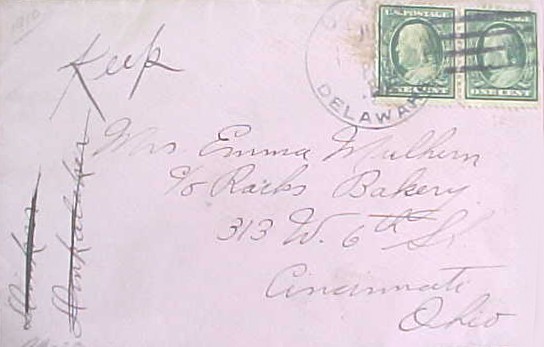 1910
Keep
U.S. POSTAGE
ONE CENT
ONE CENT
DELAWARE
Mrs. Emma Mulhern
c/o Racks Bakery
313 W. 6th St
Cincinnati
Ohio